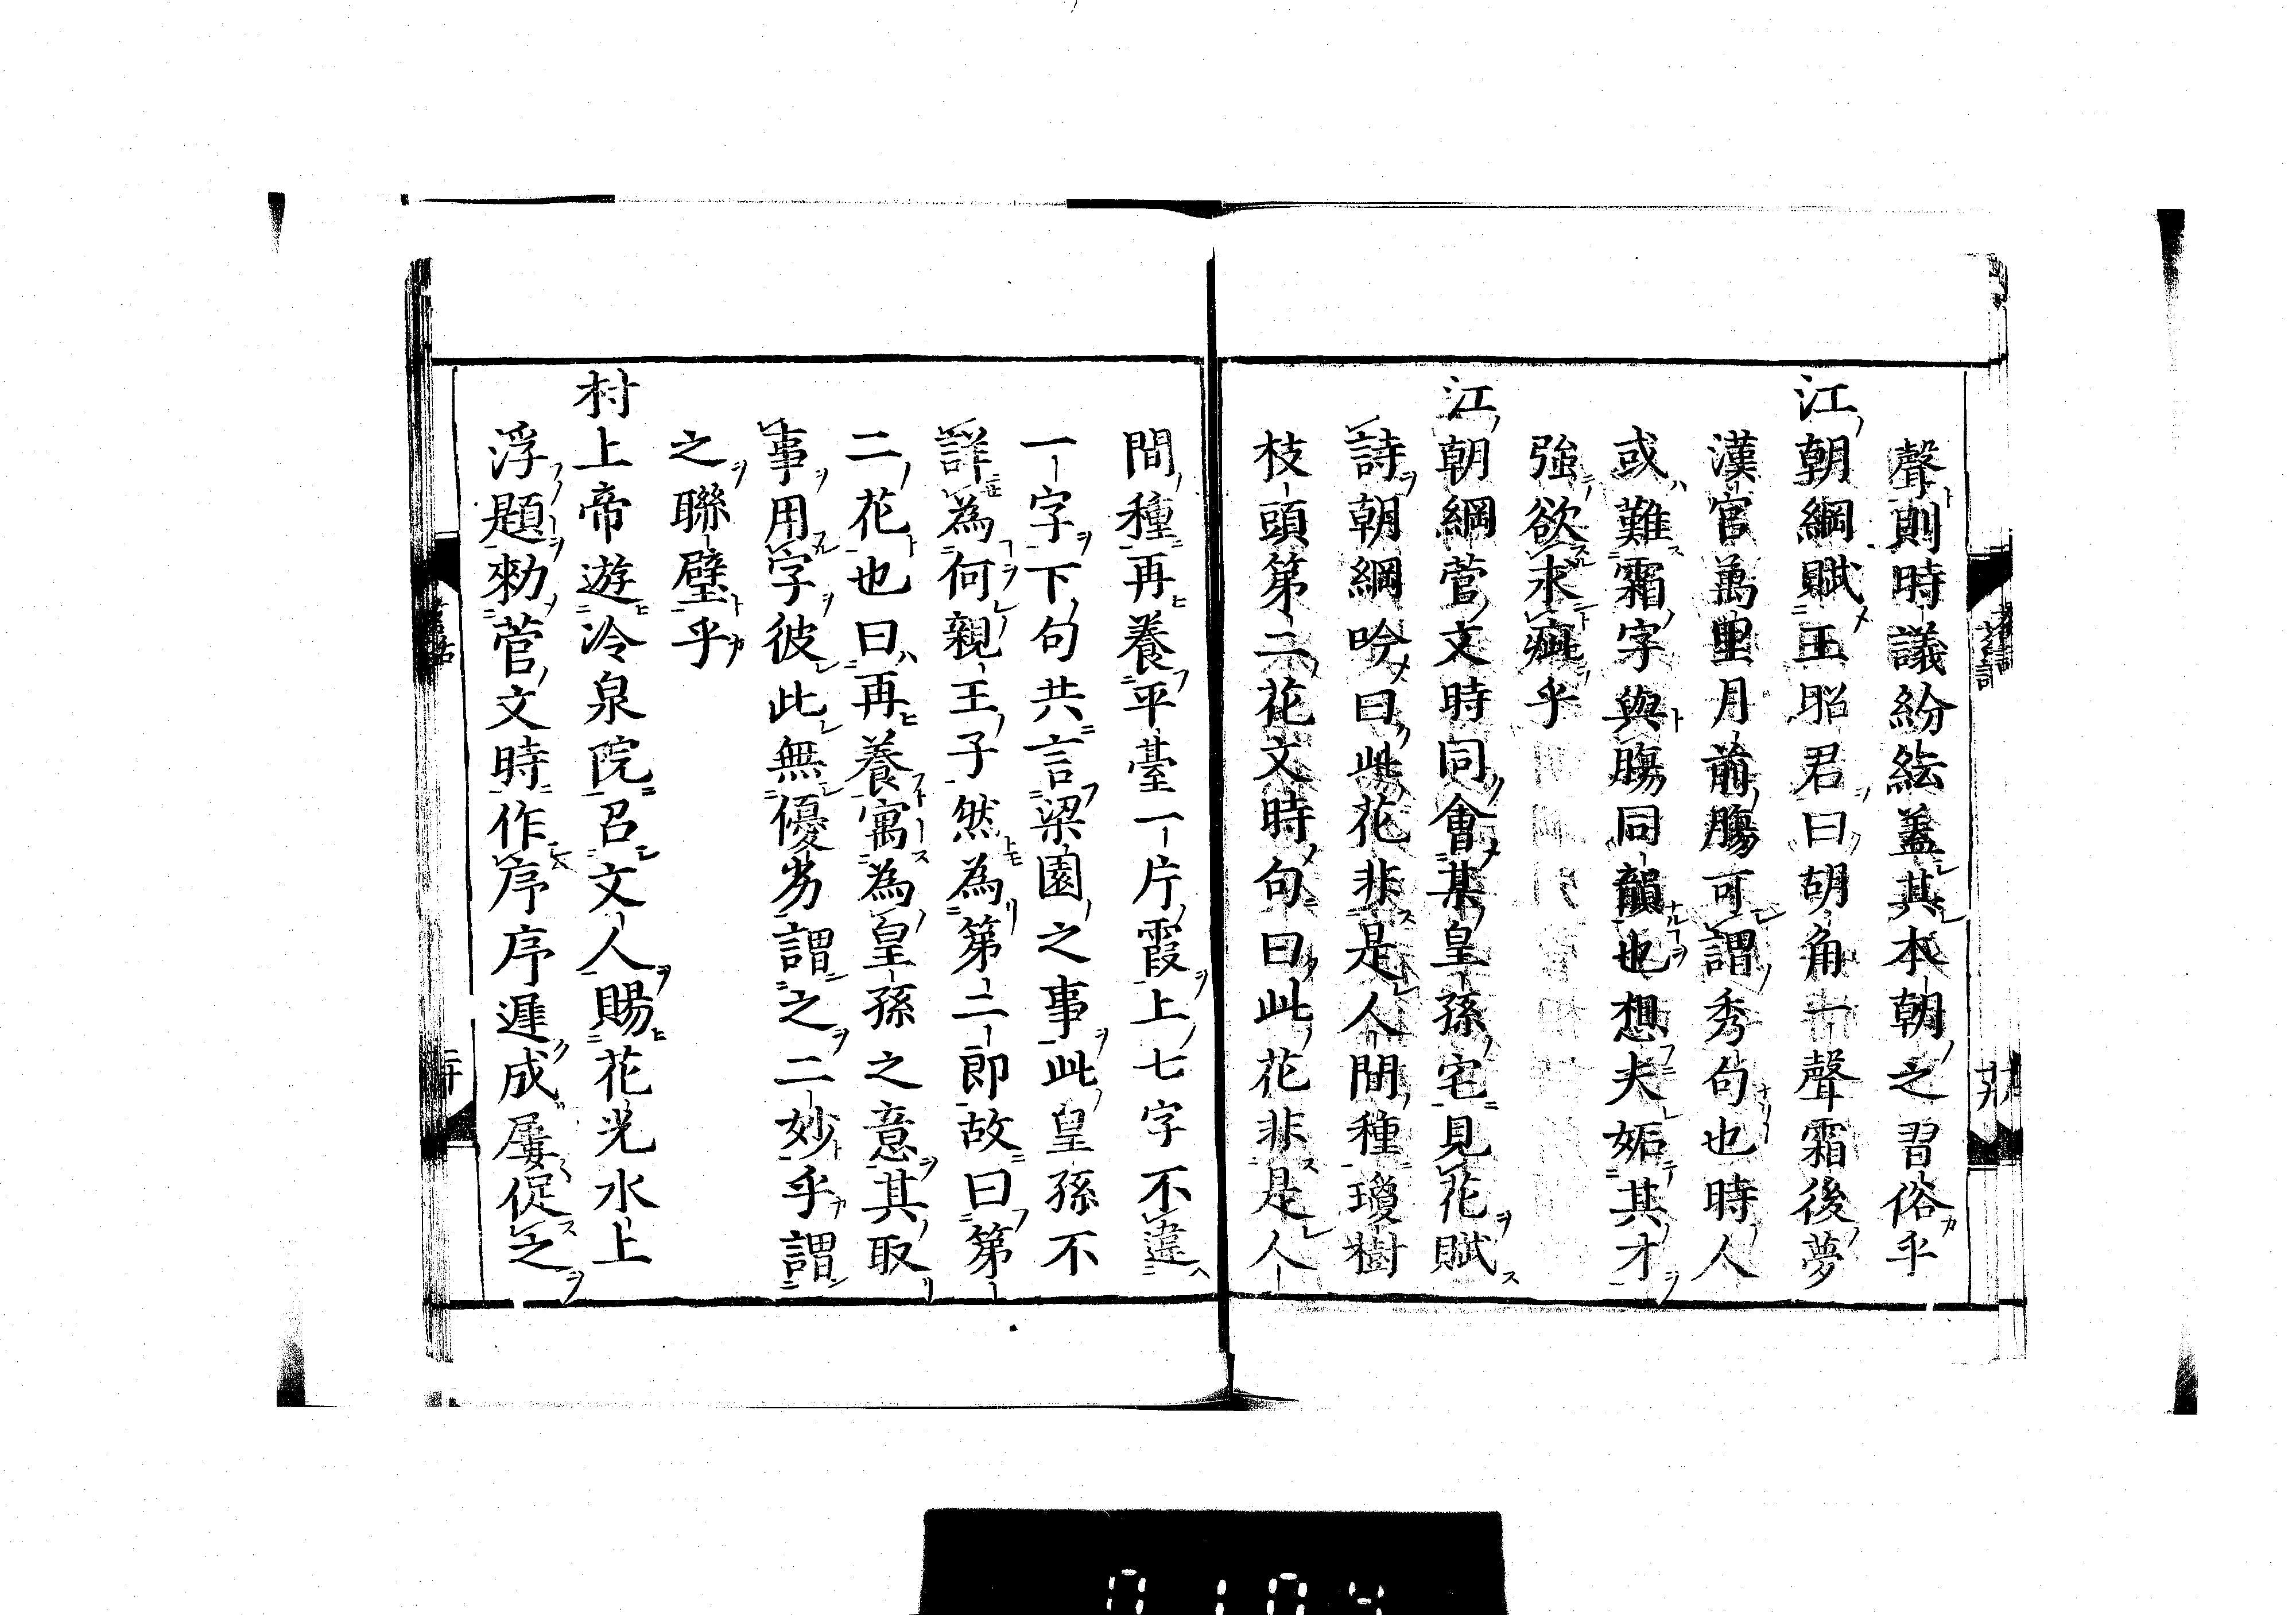 聲則時議紛紜蓋其本朝之習俗乎
江朝綱賦王昭君曰胡角一聲霜後夢
漢宮萬里月前膓可謂秀句也時人
或難霜字與膓同韻也想夫妬其才
強欲求疵乎
江朝綱菅文時同會某皇孫宅見花賦
詩朝綱吟曰此花非是人間種瓊樹
枝頭第二花文時句曰此花非是人
間種再養平臺一片霞上七字不違
一字下句共言梁園之事此皇孫不
詳為何親王子然為第二即故曰第
二花也曰再養寓為皇孫之意其取
事用字彼此無優劣謂之二妙乎謂
之聯璧乎
村上帝遊冷泉院召文人賜花光水上
浮題勅菅文時作序序遲成屢促之
0104